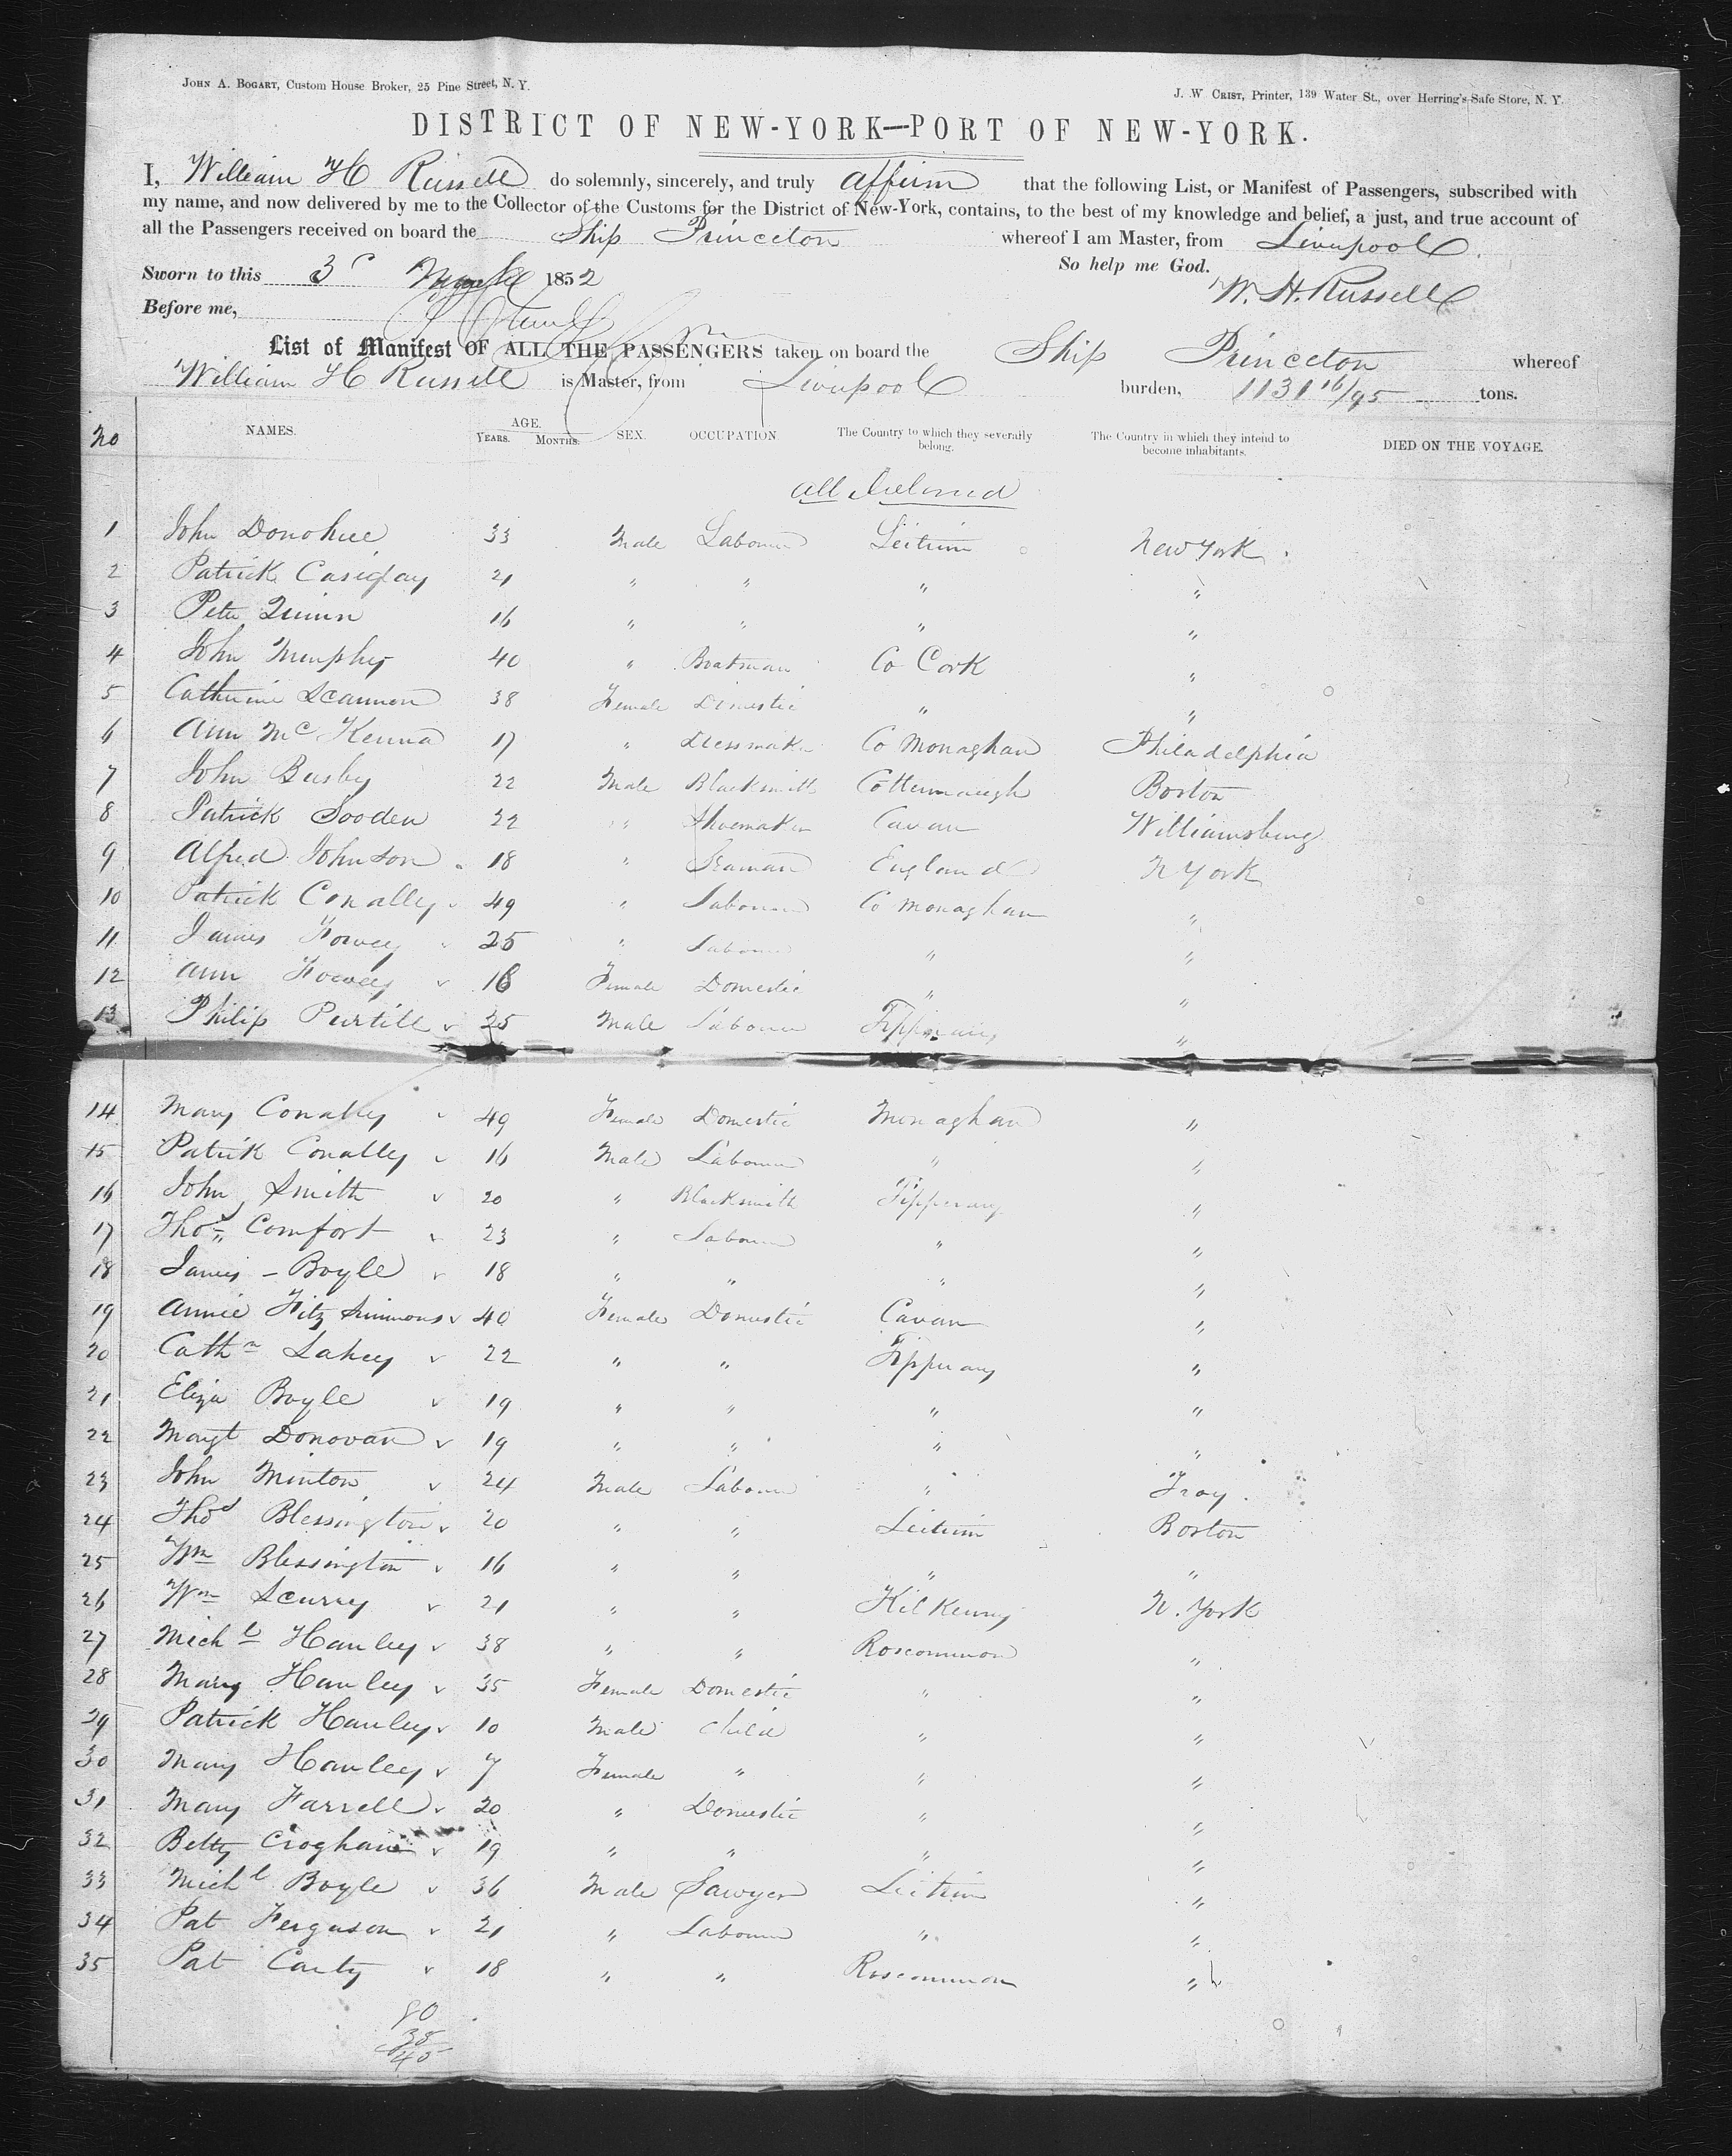 JOHN A. BOGART, Custom House Broker, 25 Pine Street, N. Y.
J. W CRIST, Printer, 139 Water St., over Herring's Safe Store, N. Y.
DISTRICT OF NEW-YORK—PORT OF NEW-YORK.
I, William H Russell do solemnly, sincerely, and truly affirm that the following List, or Manifest of Passengers, subscribed with
my name, and now delivered by me to the Collector of the Customs for the District of New-York, contains, to the best of my knowledge and belief, a just, and true account of
all the Passengers received on board the Ship Princeton whereof I am Master, from Liverpool.
So help me God.
Sworn to this 3 1852
W. H. Russell
Before me,
List of Manifest OF ALL THE PASSENGERS taken on board the Ship Princeton whereof
William H Russell is Master, from Liverpool burden, 1131 16/95 tons.
No NAMES. AGE. YEARS. MONTHS. SEX. OCCUPATION. The Country to which they severally belong. The Country in which they intend to become inhabitants. DIED ON THE VOYAGE.
all Ireland
1 John Donohue 33 Male Labourer Leitrim New York.
2 Patrick 21 " " " "
3 Peter Quinn 16 " " " "
4 John Murphy 40 " Boatman Co Cork "
5 Catherine Scannon 38 Female Domestic " "
6 Ann Mc Kenna 17 " Dressmaker Co Monaghan Philadelphia
7 John Busby 22 Male Blacksmith Boston
8 Patrick Sooden 22 " Shoemaker Cavan Williamsburg
9 Alfred Johnson 18 " Seaman England N York
10 Patrick Conally 49 " Labourer Co Monaghan "
11 James 25 " Labourer " "
12 Ann 18 Female Domestic " "
13 Philip Purtill 25 Male Labourer Tipperary "
14 Mary Conally 49 Female Domestic Monaghan "
15 Patrick Conally 16 Male Labourer " "
16 John Smith 20 " Blacksmith Tipperary "
17 Thos Comfort 23 " Labourer " "
18 James - Boyle 18 " " " "
19 Annie Fitz Simmons 40 Female Domestic Cavan "
20 Cathn Lahey 22 " " Tipperary "
21 Eliza Boyle 19 " " " "
22 Margt Donovan 19 " " " "
23 John Minton 24 Male Labourer " Troy.
24 Thos Blessington 20 " " Leitrim Boston
25 Wm Blessington 16 " " " "
26 Wm Scurry 21 " " Kilkenny N. York
27 Michl Hanley 38 " " Roscommon "
28 Mary Hanley 35 Female Domestic " "
29 Patrick Hanley 10 Male Child " "
30 Mary Hanley 7 Female " " "
31 Mary Farrell 20 " Domestic " "
32 Betty Croghan 19 " " " "
33 Michl Boyle 36 Male Sawyer Leitrim "
34 Pat Ferguson 21 " Labourer " "
35 Pat Carty 18 " " Roscommon "
80
35
45